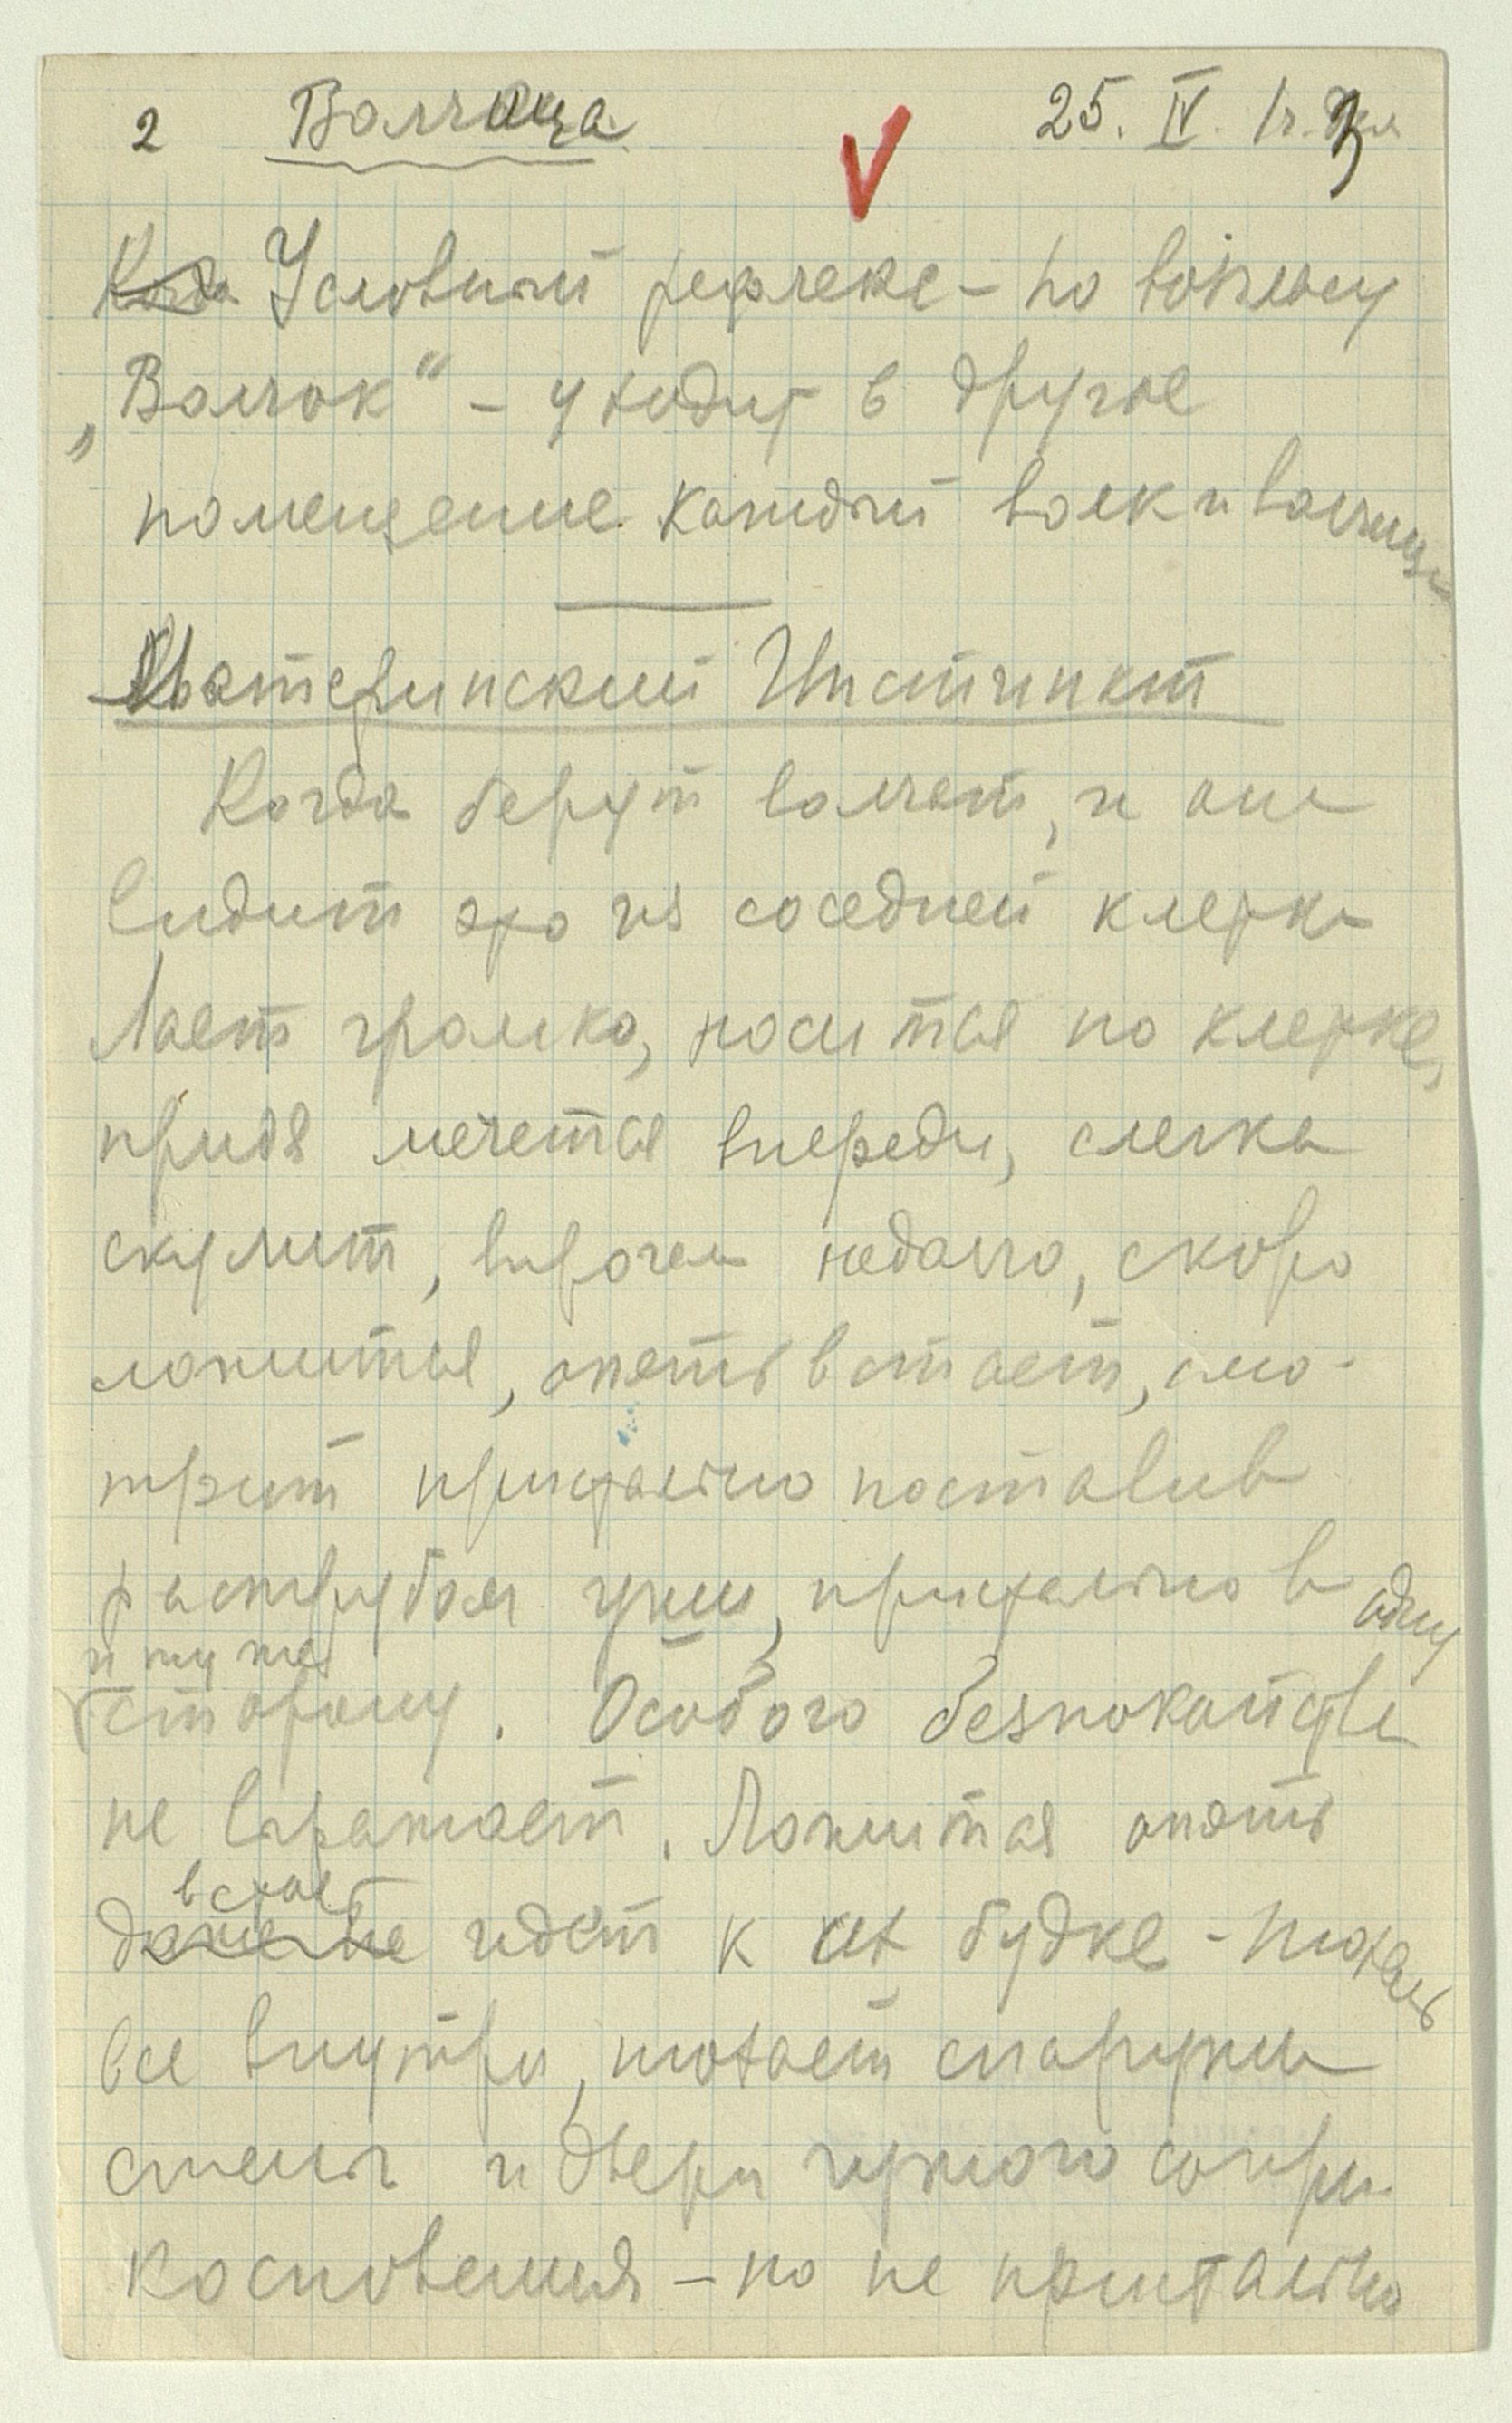 2 Волчица 25. IV. 1 ч. дня 3
Когда Условный рефлекс - по возгласу
„Волчок“ - уходит в другое
помещение каждый волк и волчица
Материнский Инстинкт
Когда берут волчат, и она
видит это из соседней клетки
Лает громко, носится по клетке,
придя мечется впереди, слегка
скулит, впрочем недолго, скоро
ложится, опять встает, смо-
трит пристально поставив
раструбом уши, пристально в одну
и ту же
сторону. Особого безпокойства
не выражает. Ложится опять
встает
идет к их будке - нюхает
все внутри, нюхает снаружи
стены и двери чужого сопри-
косновения - но не пристально